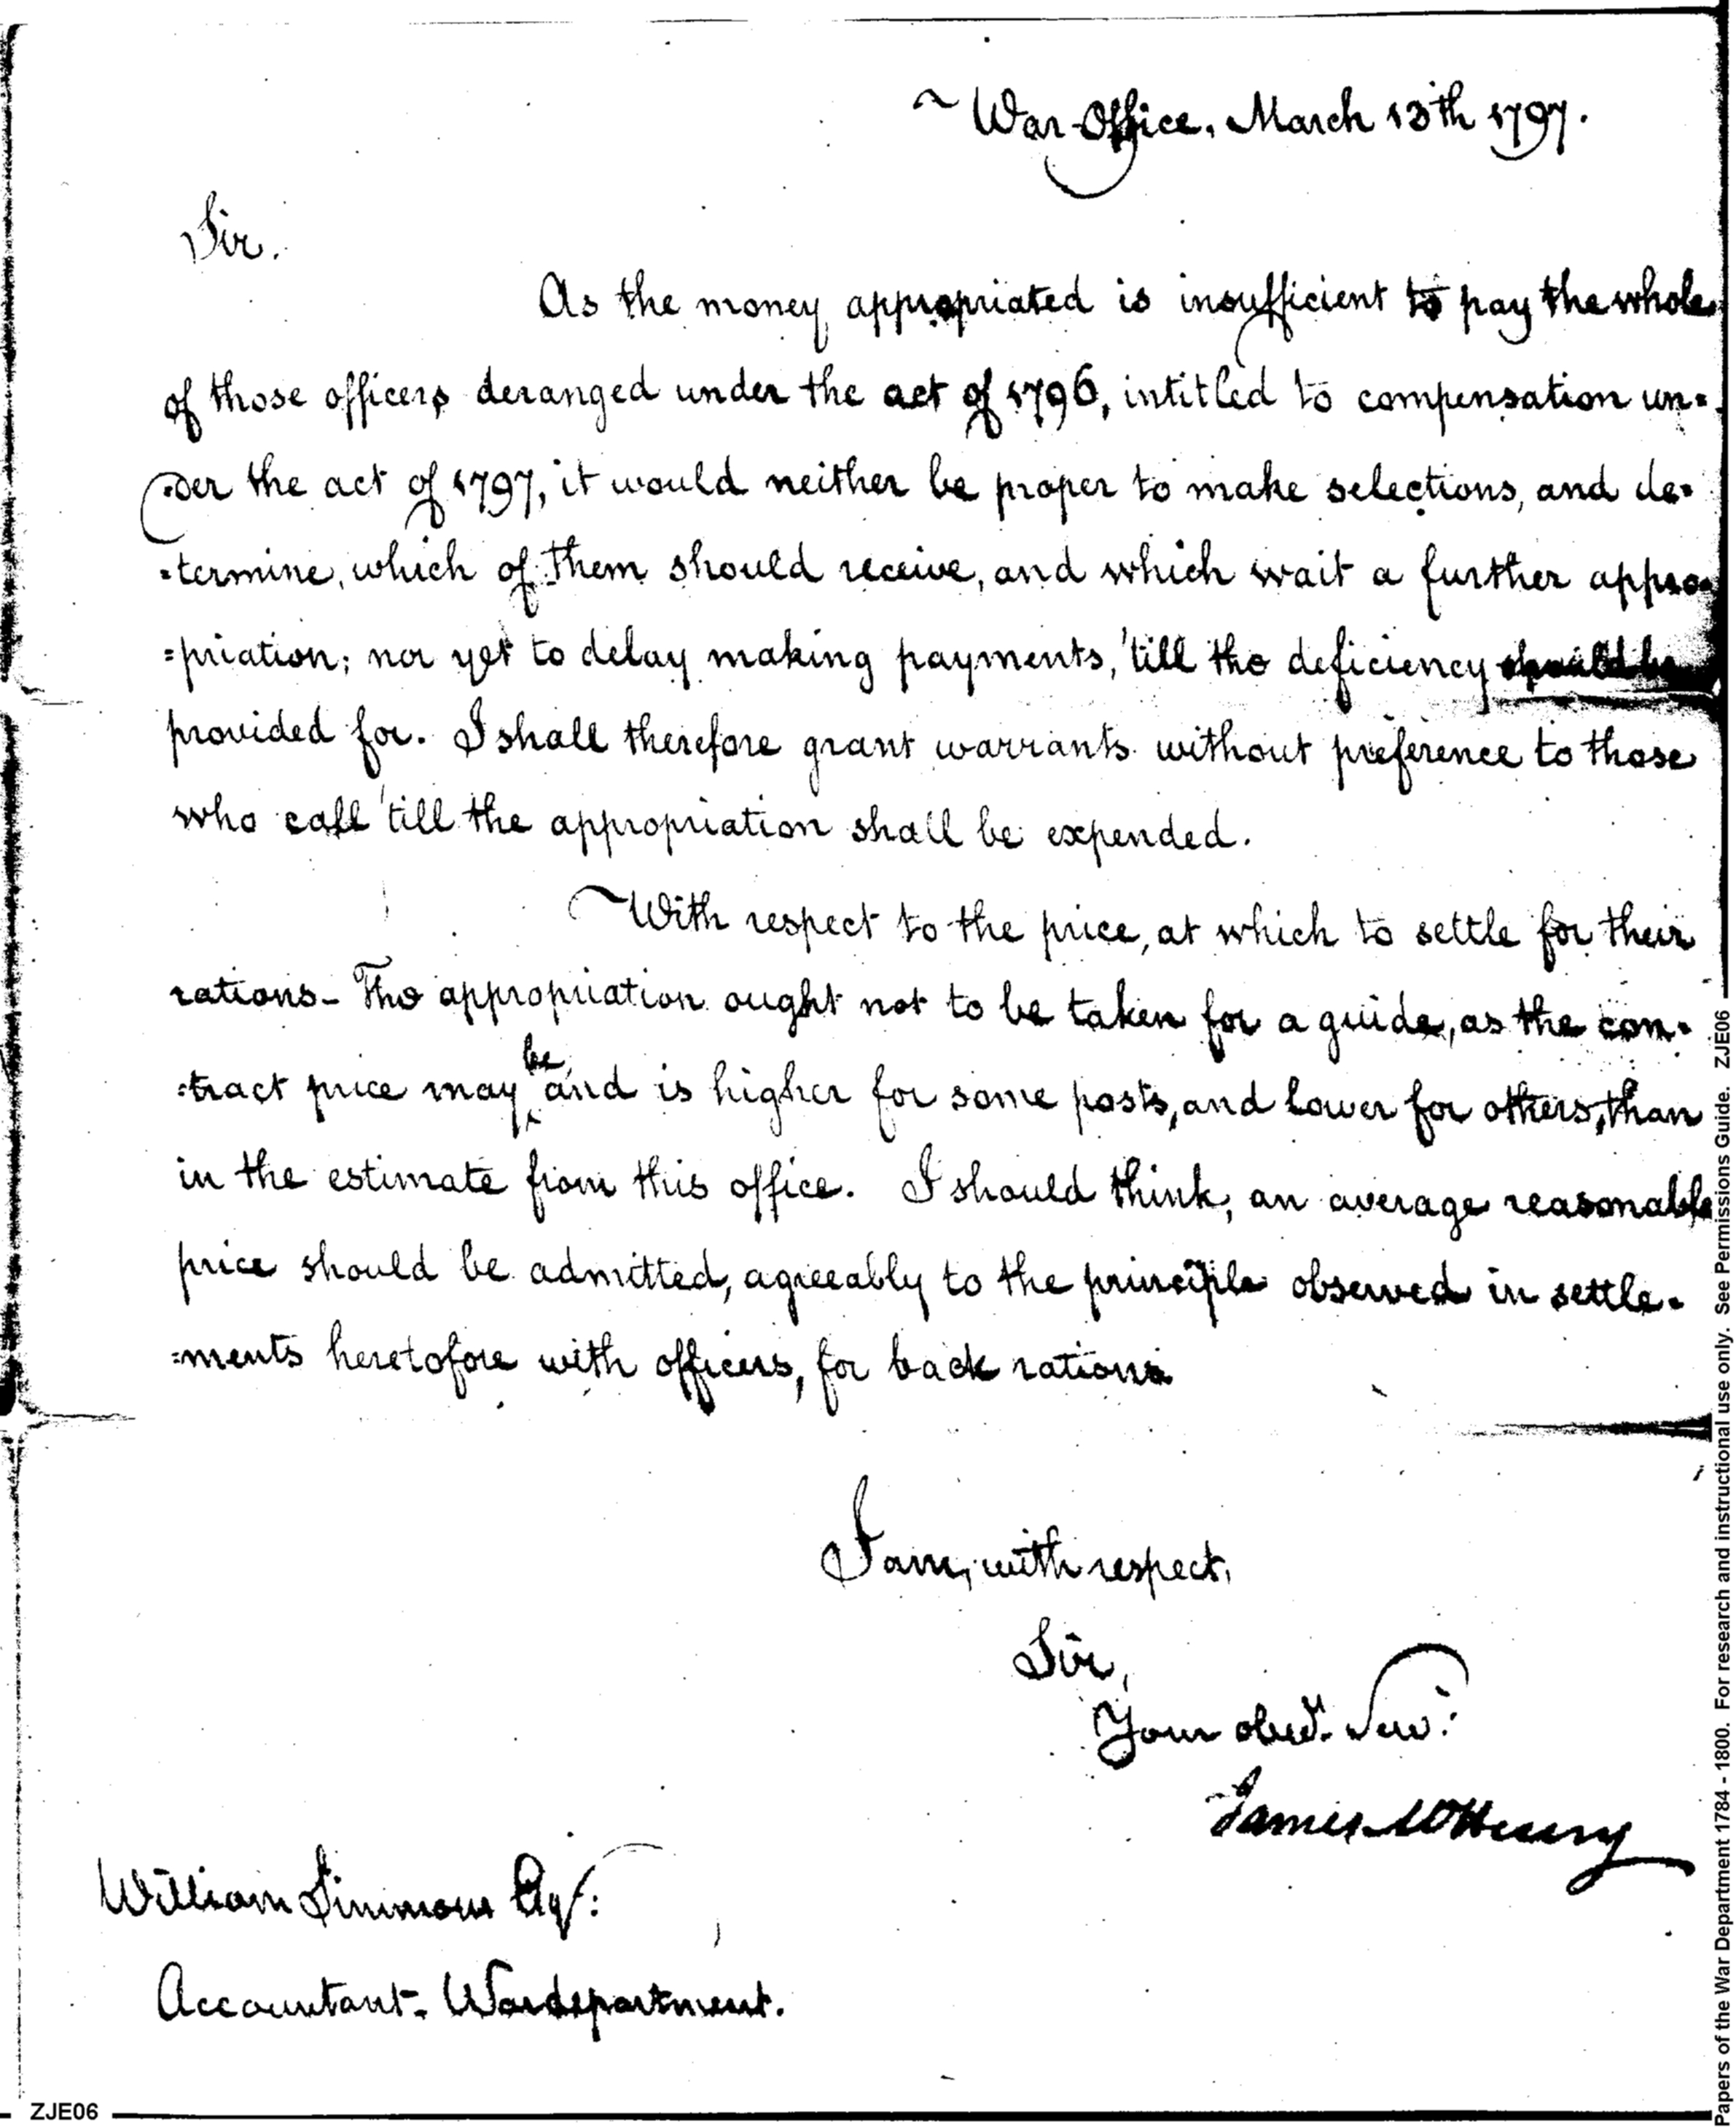 War-Office, March 13th 1797.
Sir.
As the money appropriated is insufficient to pay the whole
of those officers deranged under the act of 1796, intitled to compensation un=
=der the act of 1797, it would neither be proper to make selections, and de=
=termine, which of them should receive, and which wait a further appro=
=priation; nor yet to delay making payments, 'till the deficiency should be
provided for. I shall therefore grant warrants without preference to those
who call 'till the appropriation shall be expended.
With respect to the price, at which to settle for their
rations- The appropriation ought not to be taken for a guide, as the con=
=tract price may be and is higher for some posts, and lower for others, than
in the estimate from this office. I should think, an average reasonable
price should be admitted, agreeably to the principle observed in settle=
=ments heretofore with officers, for back rations.
I am, with respect,
Sir,
Your obed.t Serv.t
James McHenry
William Simmons Esqr:
Accountant- Wardepartment.
ZJE06
Papers of the War Department 1784 - 1800. For research and instructional use only. See Permissions Guide. ZJE06